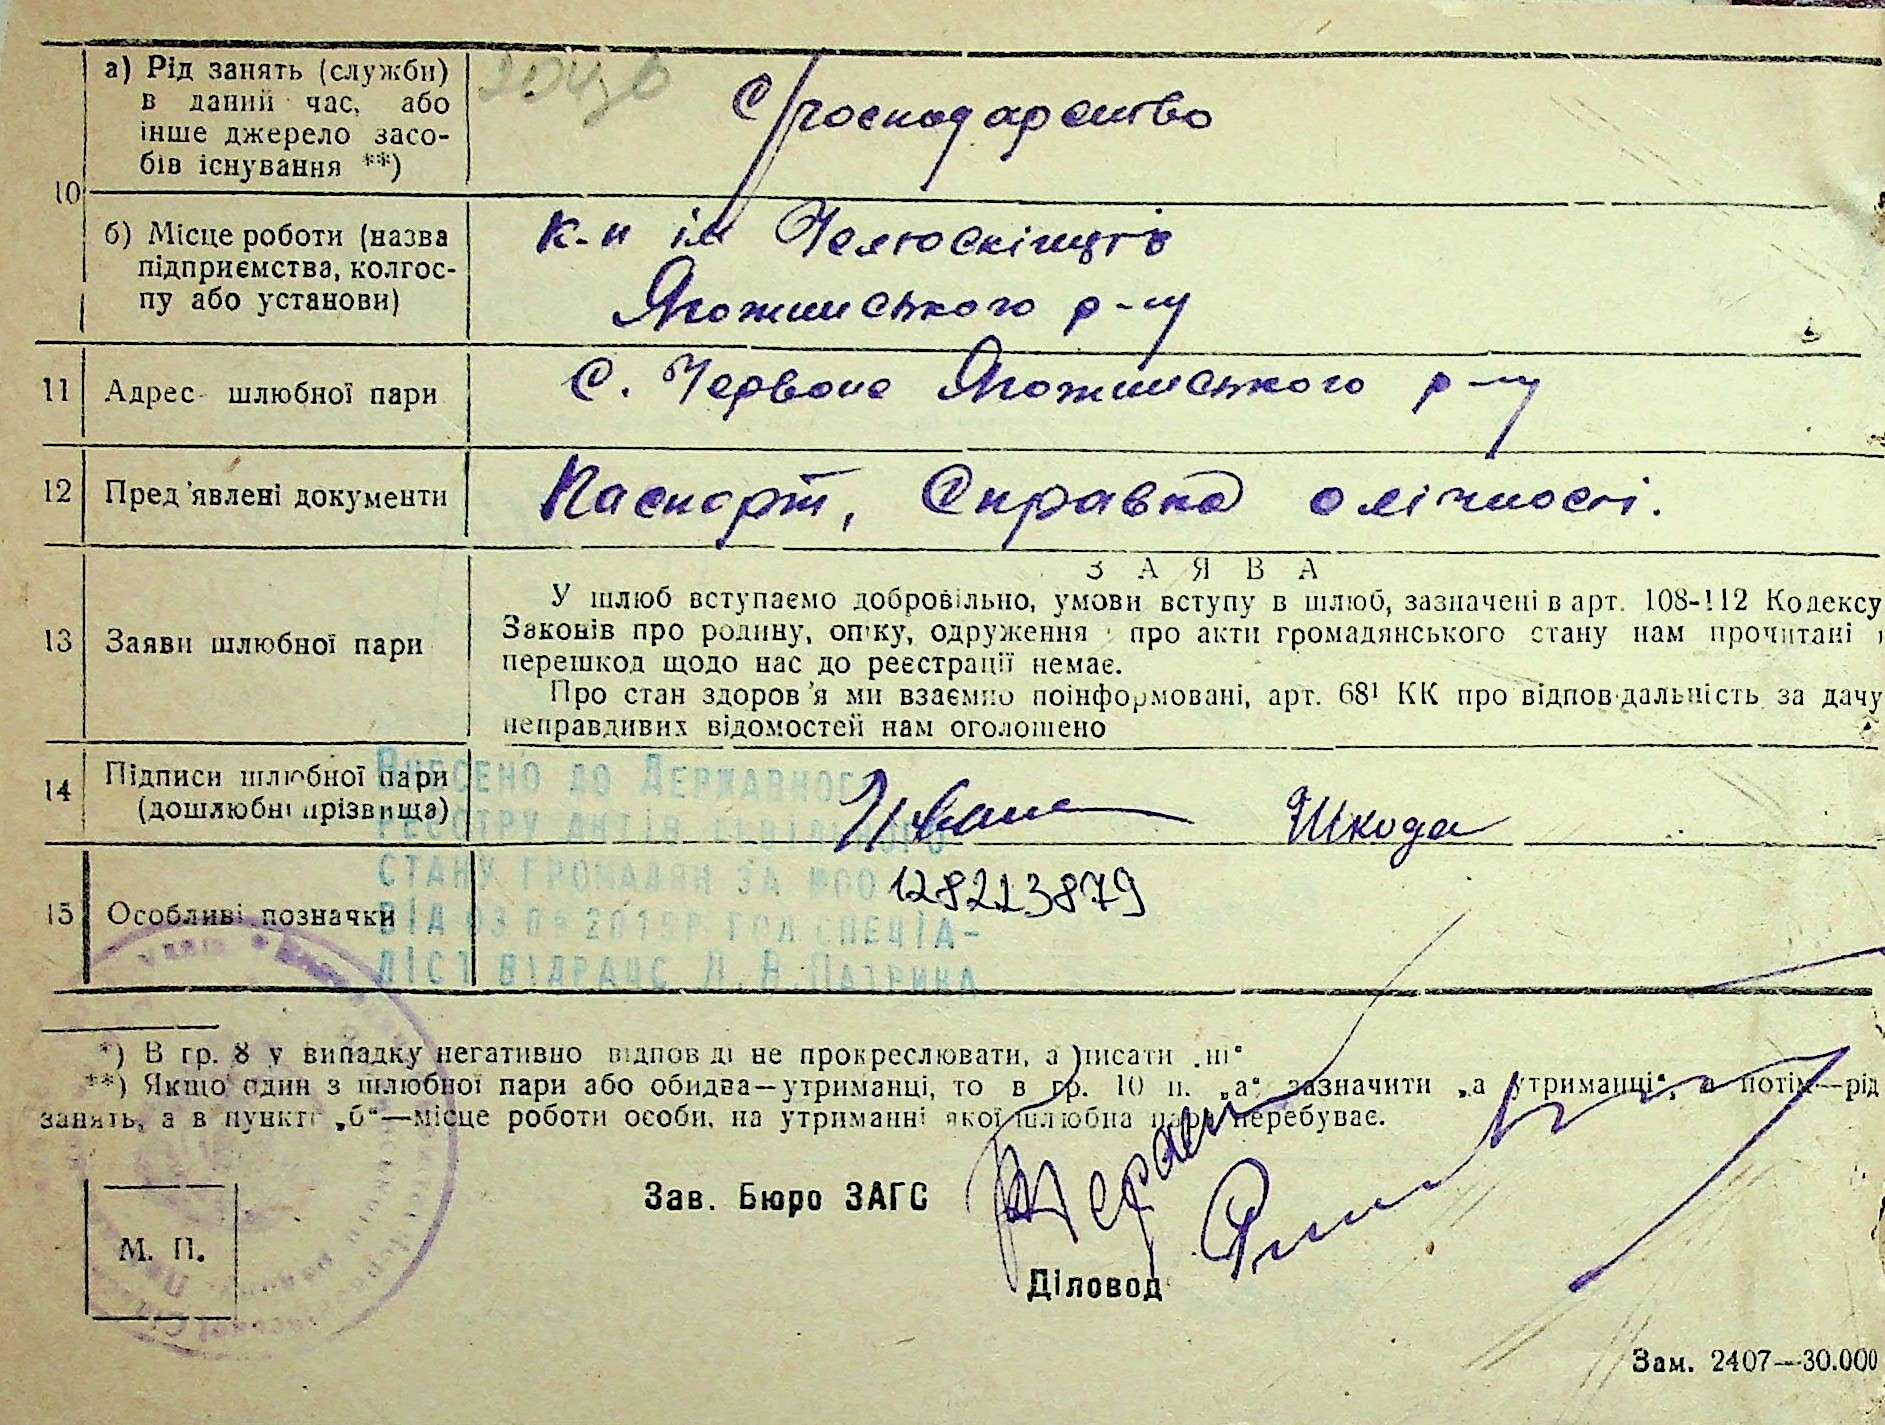 а) Рід занять (служби)
в даний час, або
інше джерело засо-
бів існування **)
С/господарство
10
б) Місце роботи (назва
підприємства, колгос-
пу або установи)
к-п ім Челюскінців
Яготинського р-ну
11 Адрес шлюбної пари
с. Червоне Яготинського р-ну
12 Пред'явлені документи
Паспорт, Справка о лічності.
13 Заяви шлюбної пари
ЗАЯВА
У шлюб вступаємо добровільно, умови вступу в шлюб, зазначені в арт. 108-112 Кодексу
Законів про родину, опіку, одруження про акти громадянського стану нам прочитані і
перешкод щодо нас до реєстрації немає.
Про стан здоров'я ми взаємно поінформовані, арт. 68¹ КК про відповідальність за дачу
неправдивих відомостей нам оголошено
14 Підписи шлюбної пари
(дошлюбні прізвища)
Шкода
15 Особливі позначки
128213879
Внесено до Державного
реєстру актів цивільного
стану громадян за №00
від 03 09 2019р спеціа-
ліст відрацс
*) В гр. 8 у випадку негативно відповіді не прокреслювати, а писати „ні“
**) Якщо один з шлюбної пари або обидва—утриманці, то в гр. 10 п. „а“ зазначити „а утриманці“, а потім—рід
занять, а в пункті „б“—місце роботи особи, на утриманні якої шлюбна пара перебуває.
Зав. Бюро ЗАГС
М. П.
Діловод
Зам. 2407—30.000